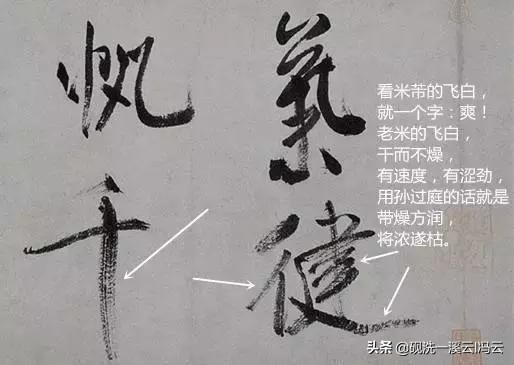 氣健
帆千
看米芾的飞白，
就一个字：爽！
老米的飞白，
干而不燥，
有速度，有涩劲，
用孙过庭的话就是
带燥方润，
将浓遂枯。
头条 @砚洗一溪云I冯云